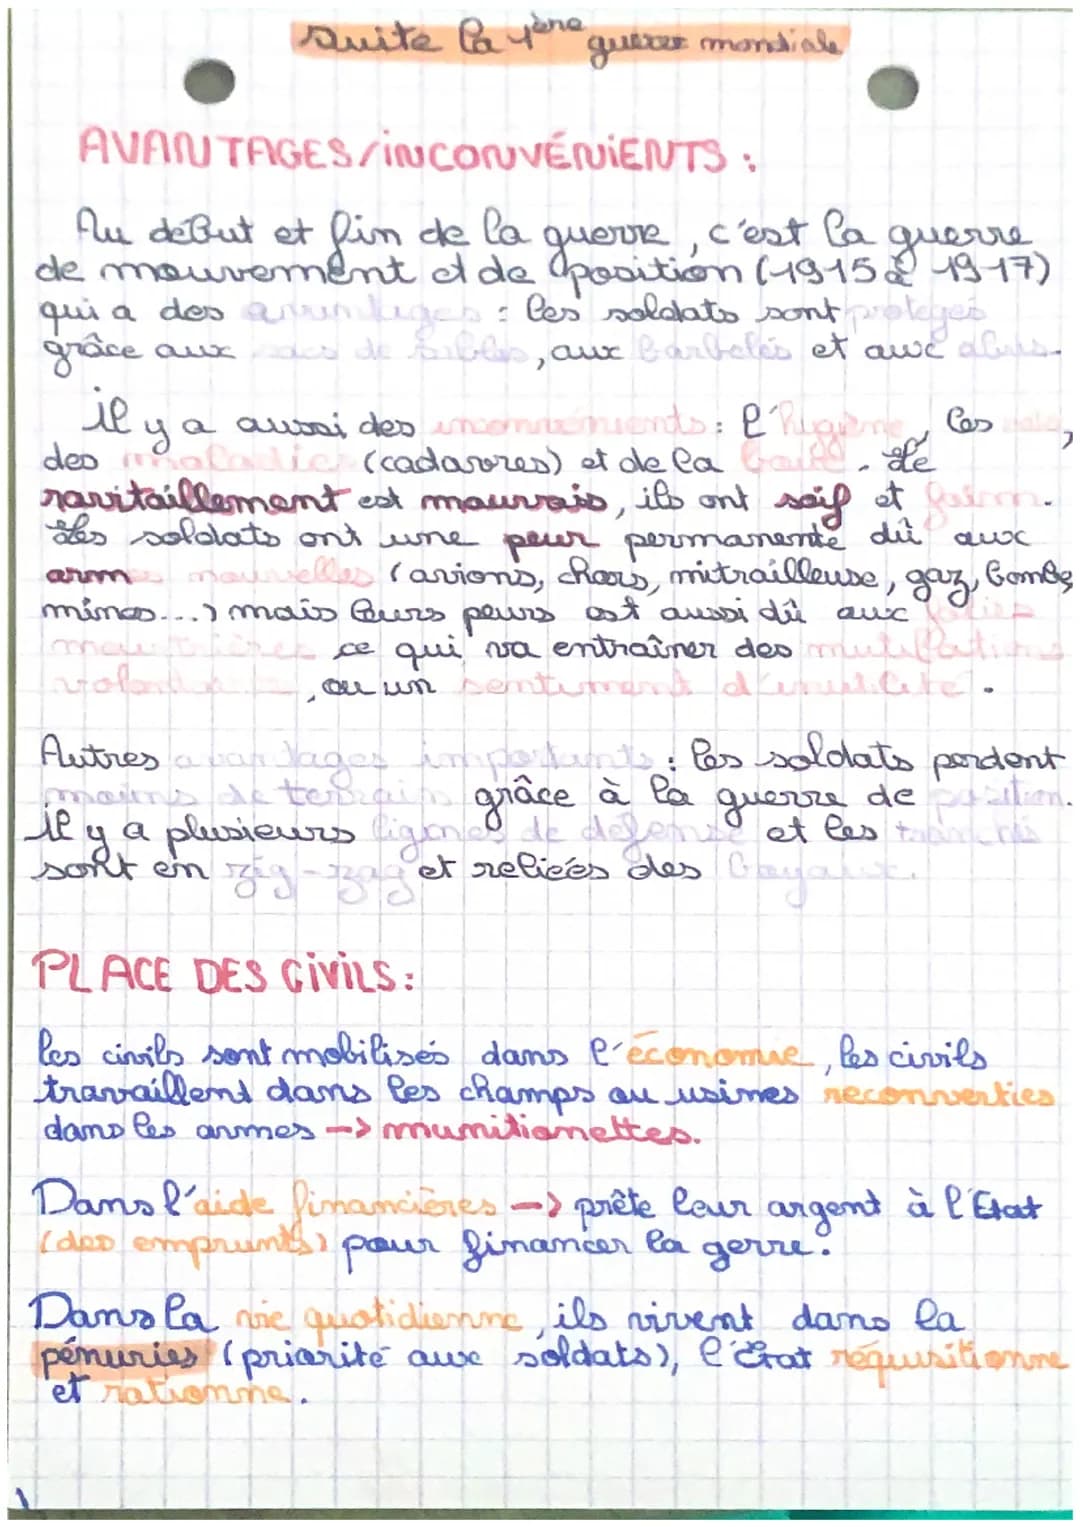 Suite la 1ère guerre mondiale
AVANTAGES/INCONVÉNIENTS :
Au début et fin de la guerre, c'est la guerre
de mouvement et de position (1915 à 1917)
qui a des avantages : les soldats sont protégés
grâce aux sacs de sables, aux barbelés et aux abris.
il y a aussi des inconvénients : l'hygiène, les
des maladies (cadavres) et de la boue. Le
ravitaillement est mauvais, ils ont soif et faim.
Les soldats ont une peur permanente dû aux
armes nouvelles (avions, chars, mitrailleuse, gaz, bombe,
mines...) mais leurs peurs est aussi dû aux folies
meurtrières ce qui va entraîner des mutilations
volontaires, ou un sentiment d'inutilité.
Autres avantages importants : les soldats perdent
moins de terrain grâce à la guerre de position.
il y a plusieurs lignes de défense et les tranchés
sont en zig-zag et reliées des boyaux.
PLACE DES CIVILS :
les civils sont mobilisés dans l'économie, les civils
travaillent dans les champs ou usines reconverties
dans les armes -> munitionettes.
Dans l'aide financières -> prête leur argent à l'Etat
(des emprunts) pour financer la gerre.
Dans la vie quotidienne, ils vivent dans la
pénuries (priorité aux soldats), l'État réquisitionne
et rationne.